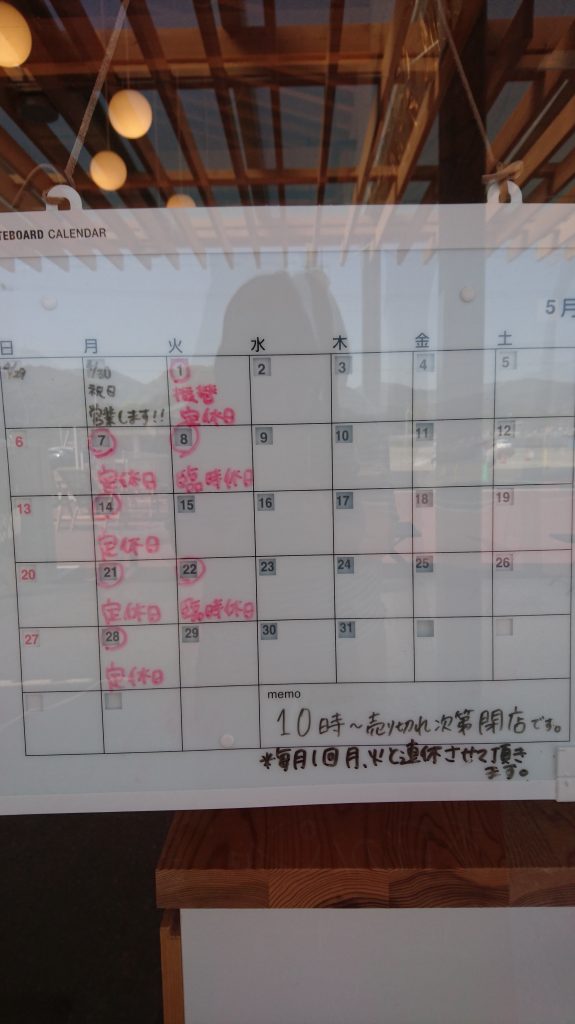 TEBOARD CALENDAR
5月
日 月 火 水 木 金 土
4/29 4/30 1 2 3 4 5
祝日 振替
営業します!! 定休日
6 7 8 9 10 11 12
定休日 臨時休日
13 14 15 16 17 18 19
定休日
20 21 22 23 24 25 26
定休日 臨時休日
27 28 29 30 31
定休日
memo
10時~売り切れ次第閉店です。
*毎月1回月、火と連休させて頂き
ます。